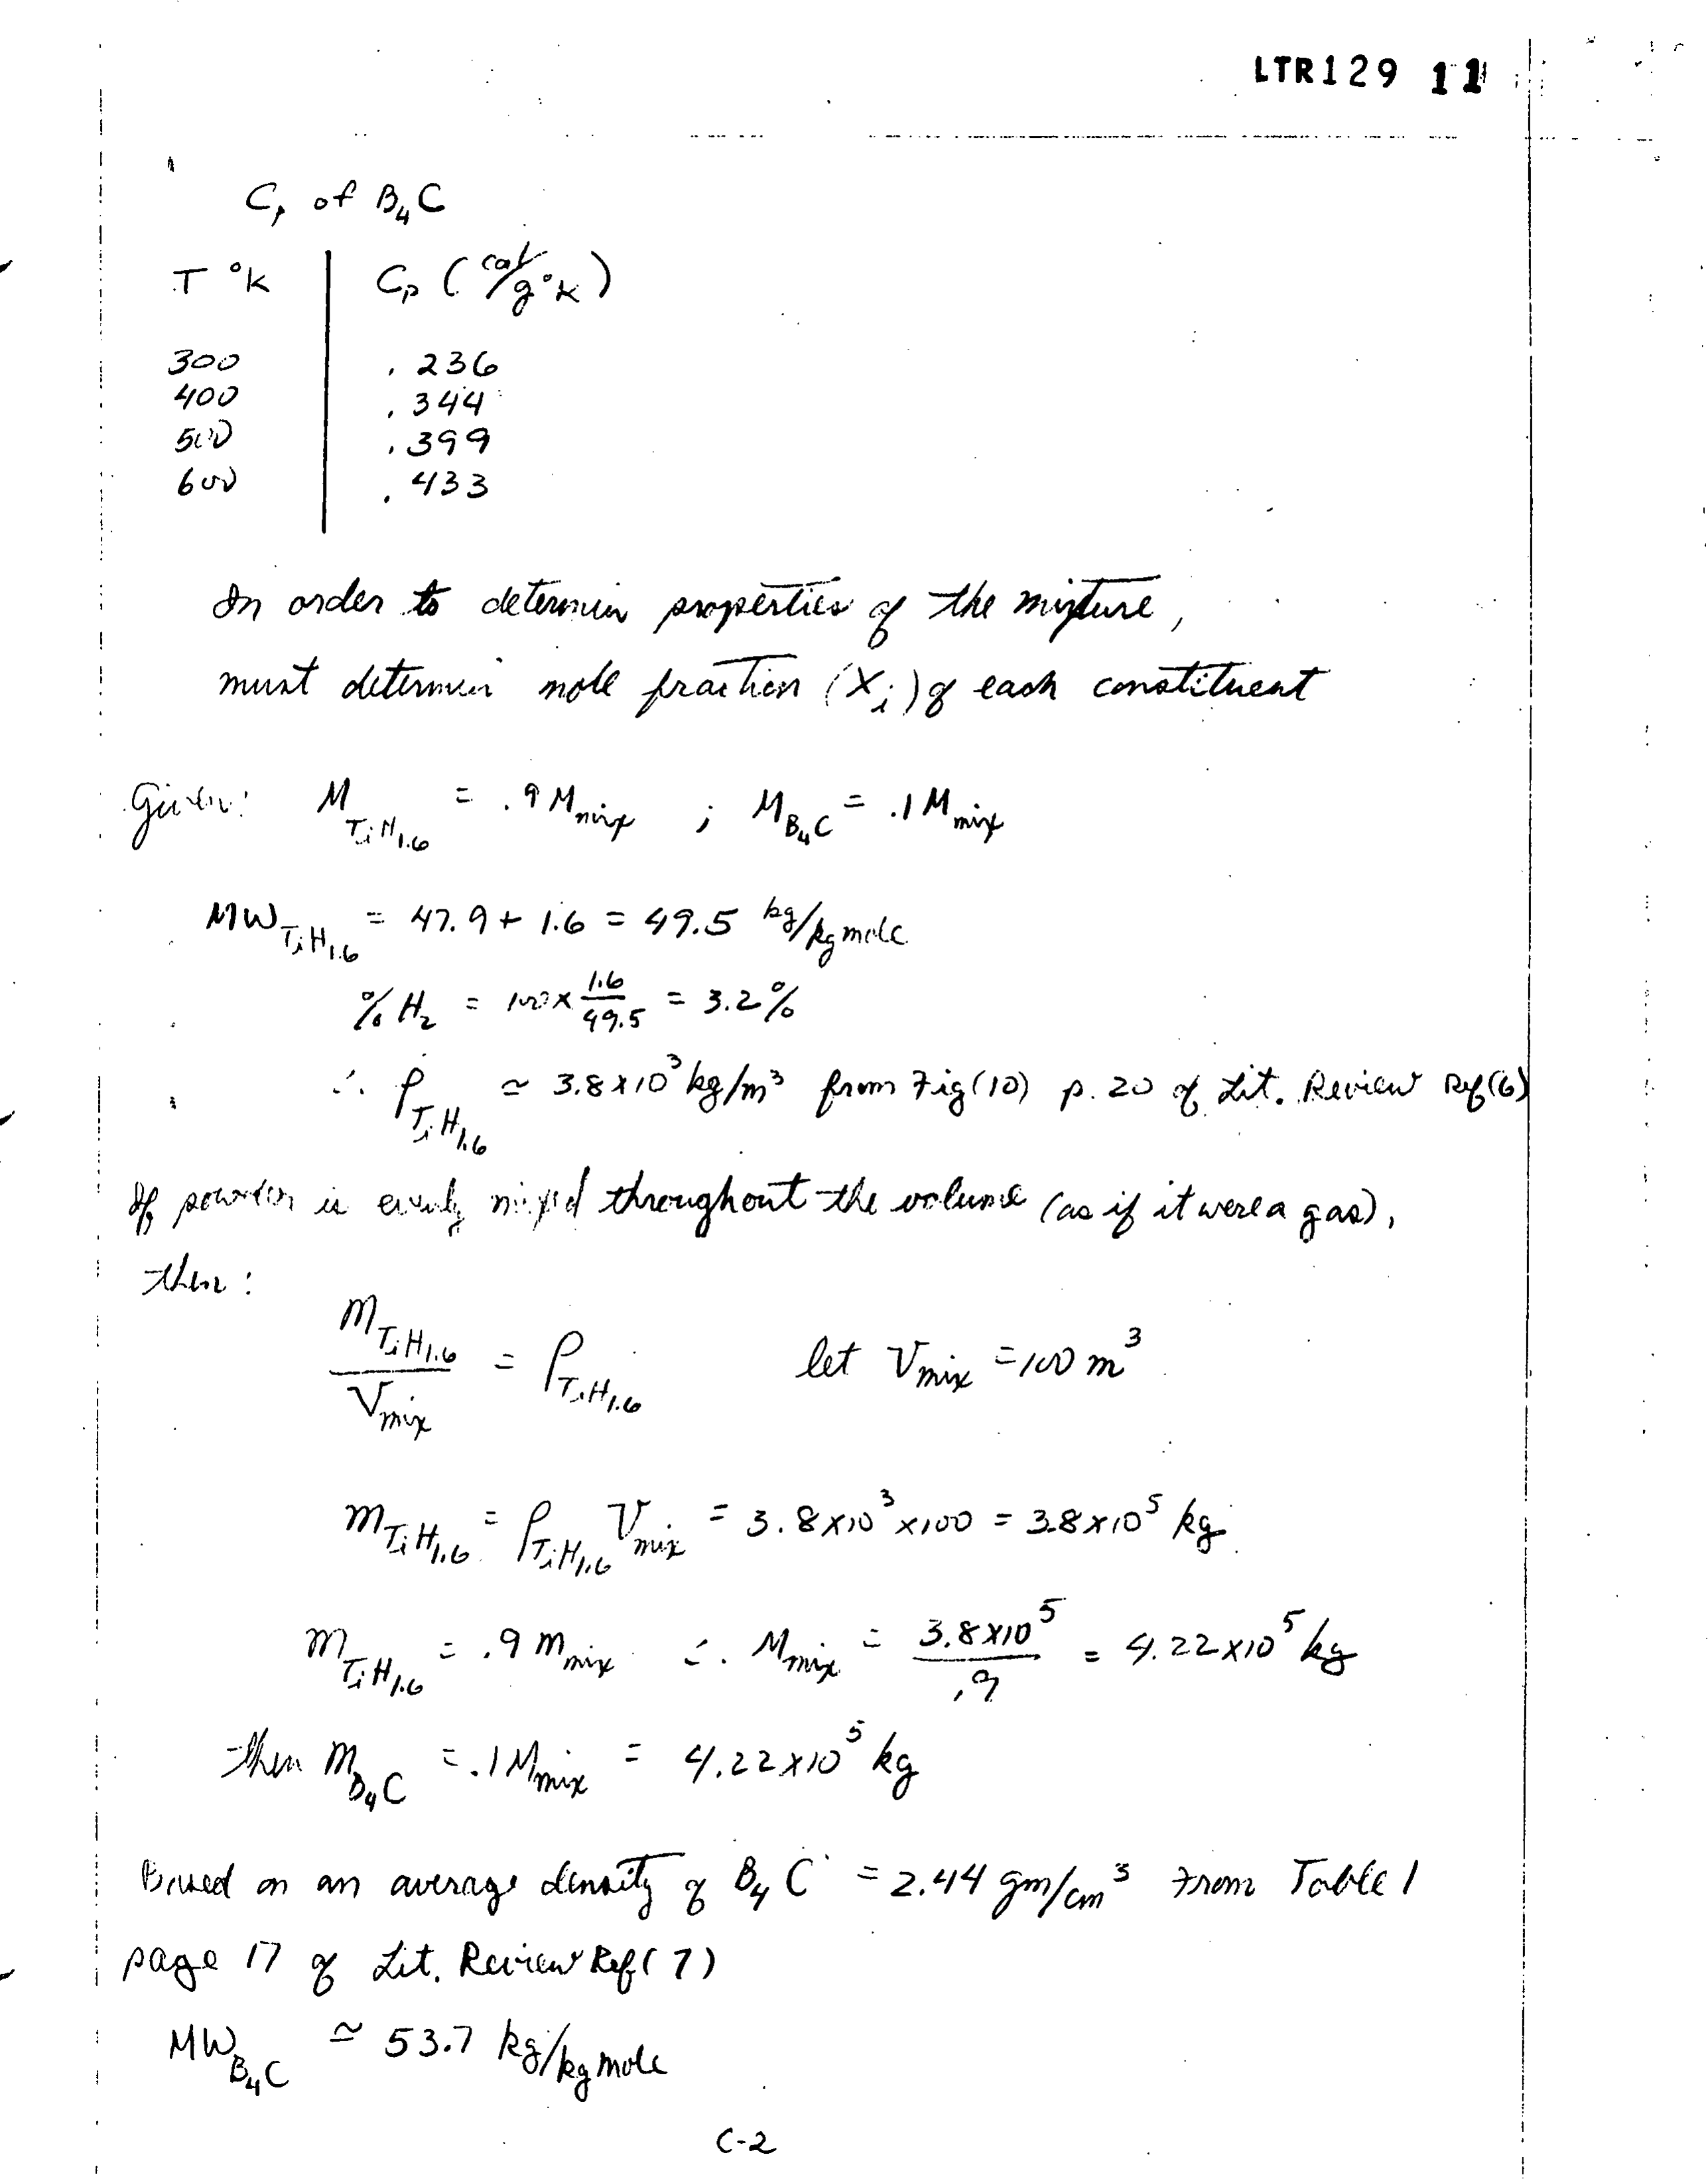 LTR129 11
Cp of B4C
T °K | Cp (cal/g°K)
300 .236
400 .344
500 .399
600 .433
In order to determin properties of the mixture,
must determin mole fraction (Xi) of each constituent
Given: M TiH1.6 = .9 Mmix ; M B4C = .1 Mmix
MW TiH1.6 = 47.9 + 1.6 = 49.5 kg/kgmole
% H2 = 100 x 1.6/49.5 = 3.2%
∴ ρ TiH1.6 ≃ 3.8x10³ kg/m³ from Fig(10) p. 20 of Lit. Review Ref(6)
If powder is evenly mixed throughout the volume (as if it were a gas),
then:
m TiH1.6 / Vmix = ρ TiH1.6 let Vmix = 100 m³
m TiH1.6 = ρ TiH1.6 Vmix = 3.8x10³ x100 = 3.8x10⁵ kg
m TiH1.6 = .9 mmix ∴ Mmix = 3.8x10⁵ / .9 = 4.22x10⁵ kg
then m B4C = .1 Mmix = 4.22x10⁵ kg
Based on an average density of B4C = 2.44 gm/cm³ From Table 1
page 17 of Lit. Review Ref(7)
MW B4C ≃ 53.7 kg/kgmole
C-2